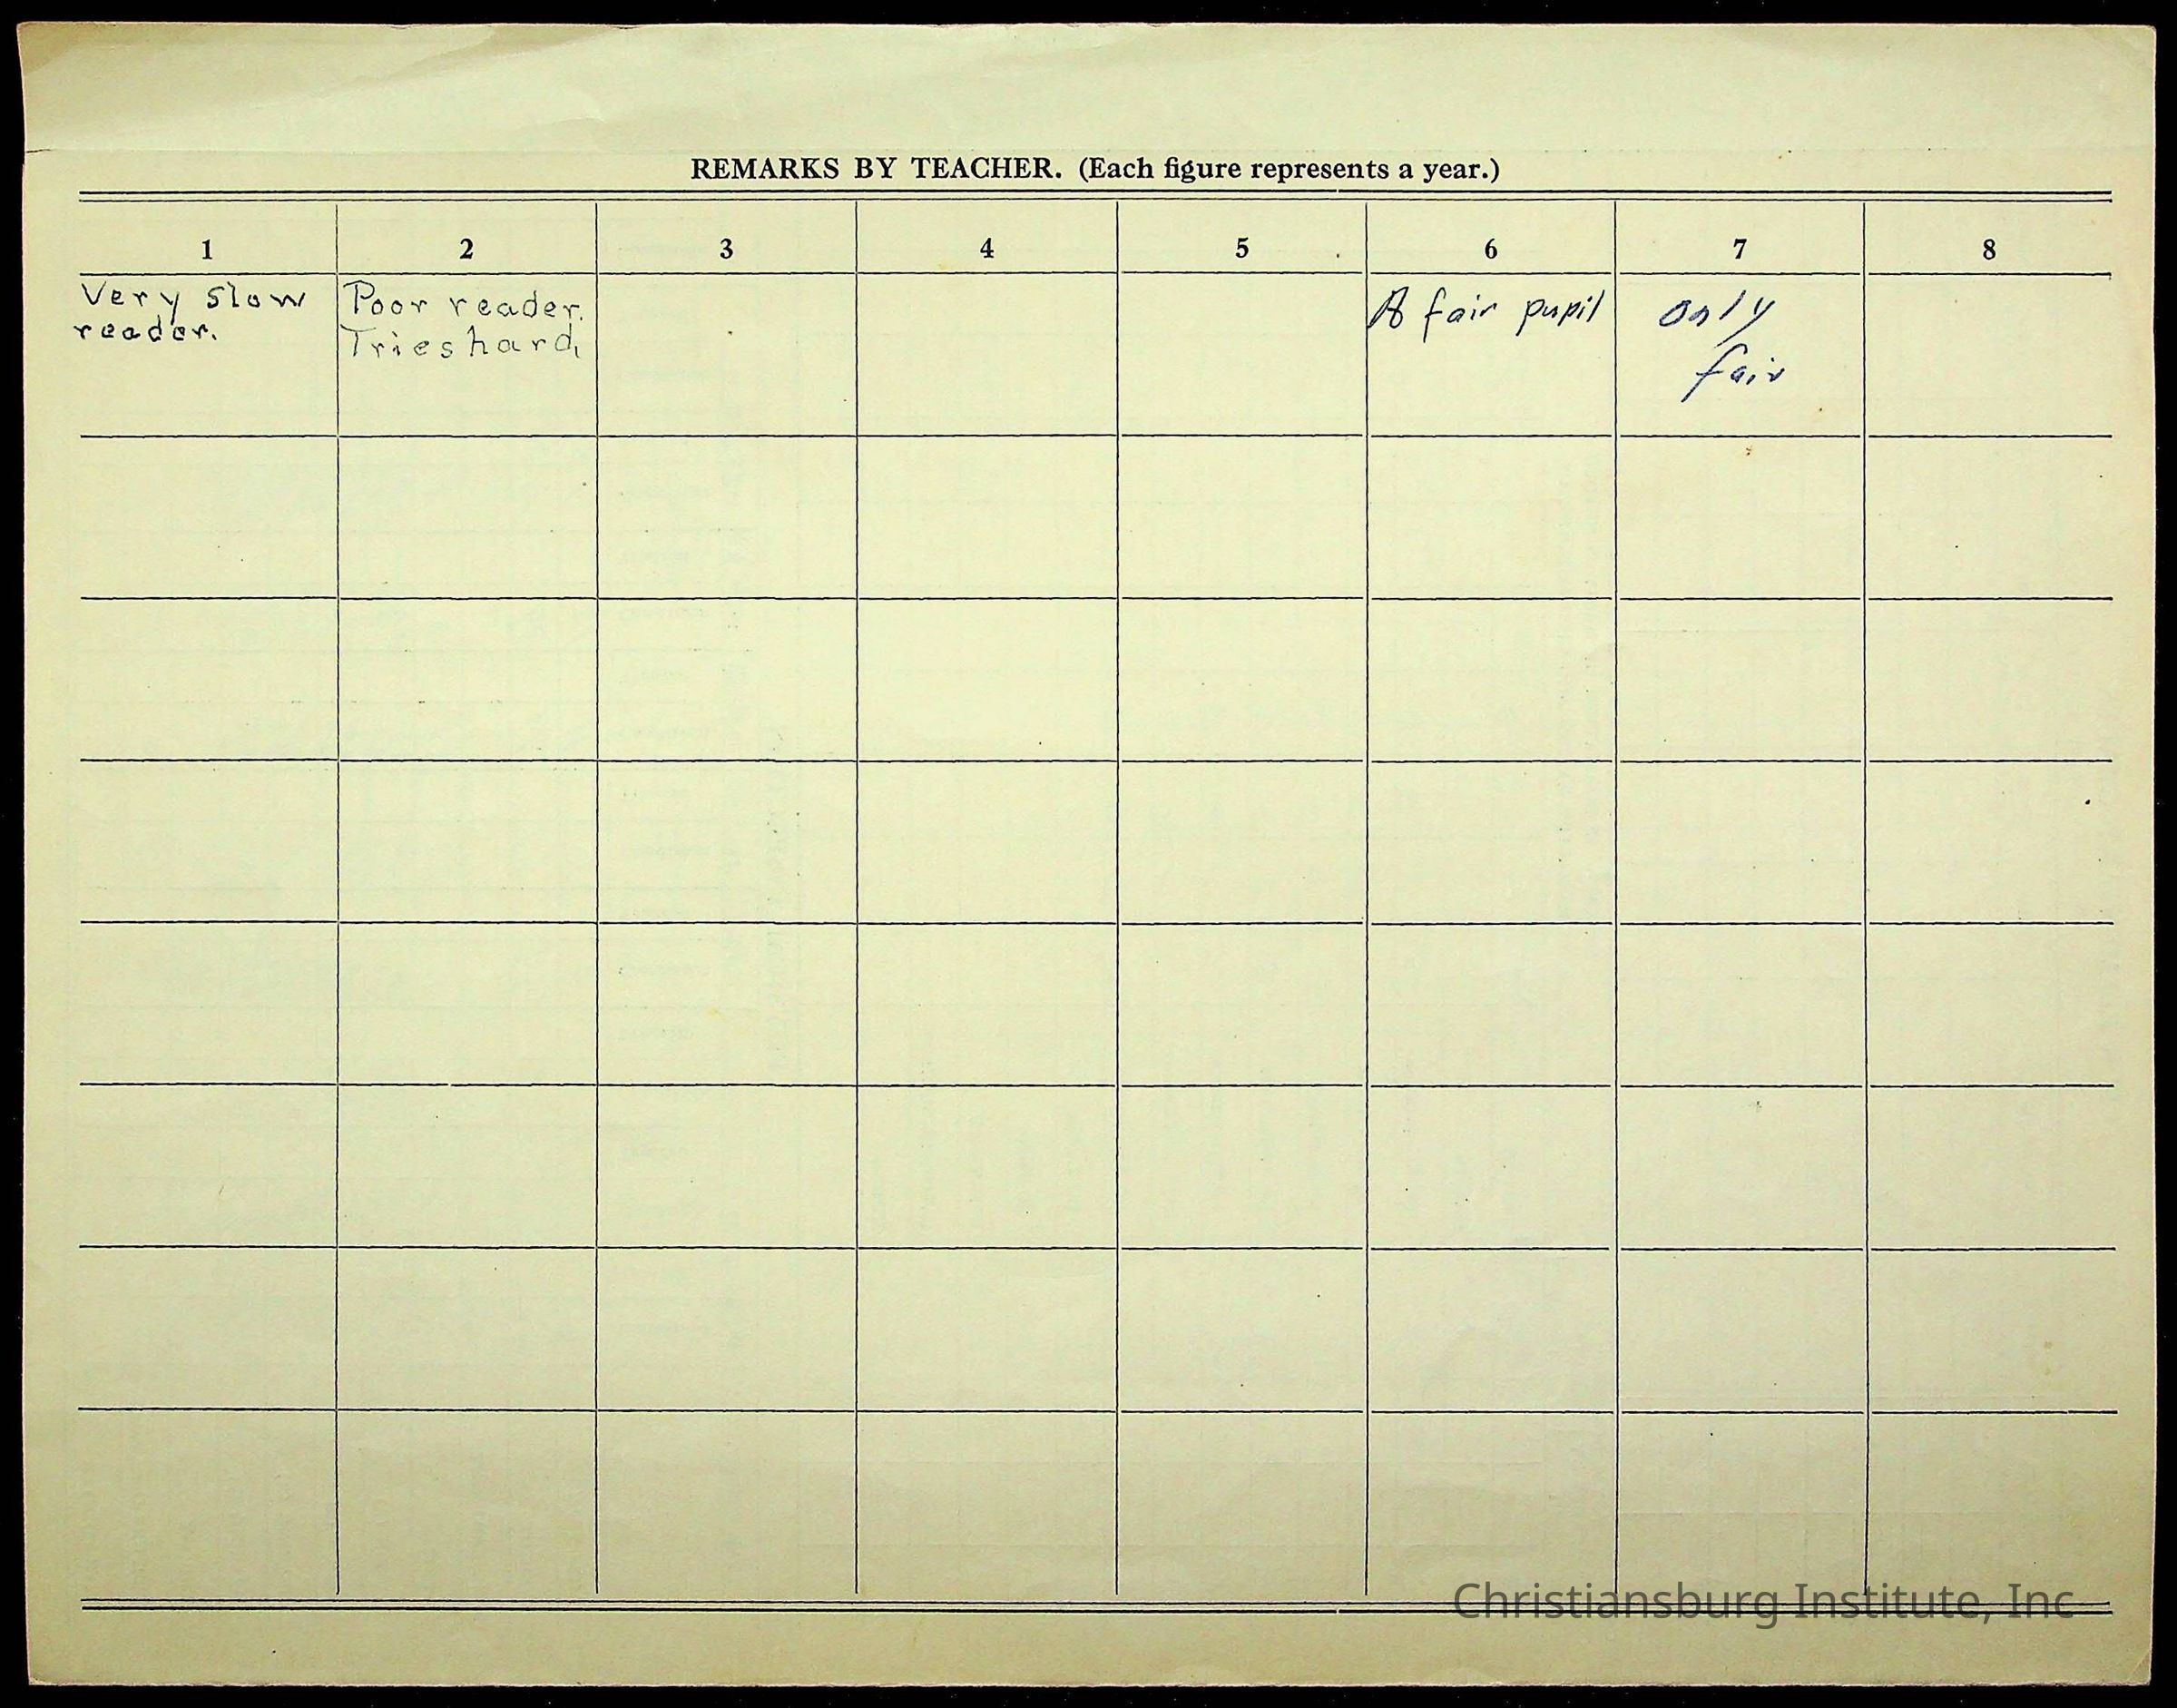 REMARKS BY TEACHER. (Each figure represents a year.)
1 2 3 4 5 6 7 8
Very slow
reader.
Poor reader.
Tries hard.
A fair pupil
only
fair
Christiansburg Institute, Inc